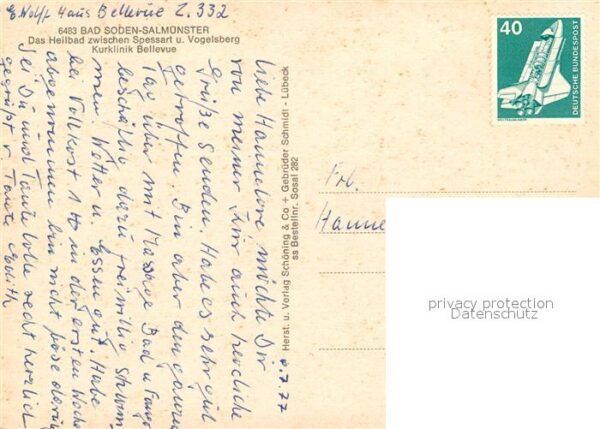 E. Wolff Haus Bellevue Z. 332
6483 BAD SODEN-SALMÜNSTER
Das Heilbad zwischen Spessart u. Vogelsberg
Kurklinik Bellevue
6.7.77
Liebe Hannelore möchte Dir
von meiner Kur auch herzliche
Grüße senden. Habe es sehr gut
getroffen. Bin aber den ganzen
Tag über mit Massage Bad u. Fango
beschäftig dazu freiwillig Schwim
men Wetter u. Essen gut. Habe
bei Vollkost 1 in der ersten Woche
abgenommen bin nicht böse darüb
Sei Du und Tante recht herzlich
gegrüßt v Tante Edith
Herst. u. Verlag Schöning & Co + Gebrüder Schmidt - Lübeck
ss Bestellnr. Sosal 282
40
DEUTSCHE BUNDESPOST
Frl.
Hanne
privacy protection
Datenschutz